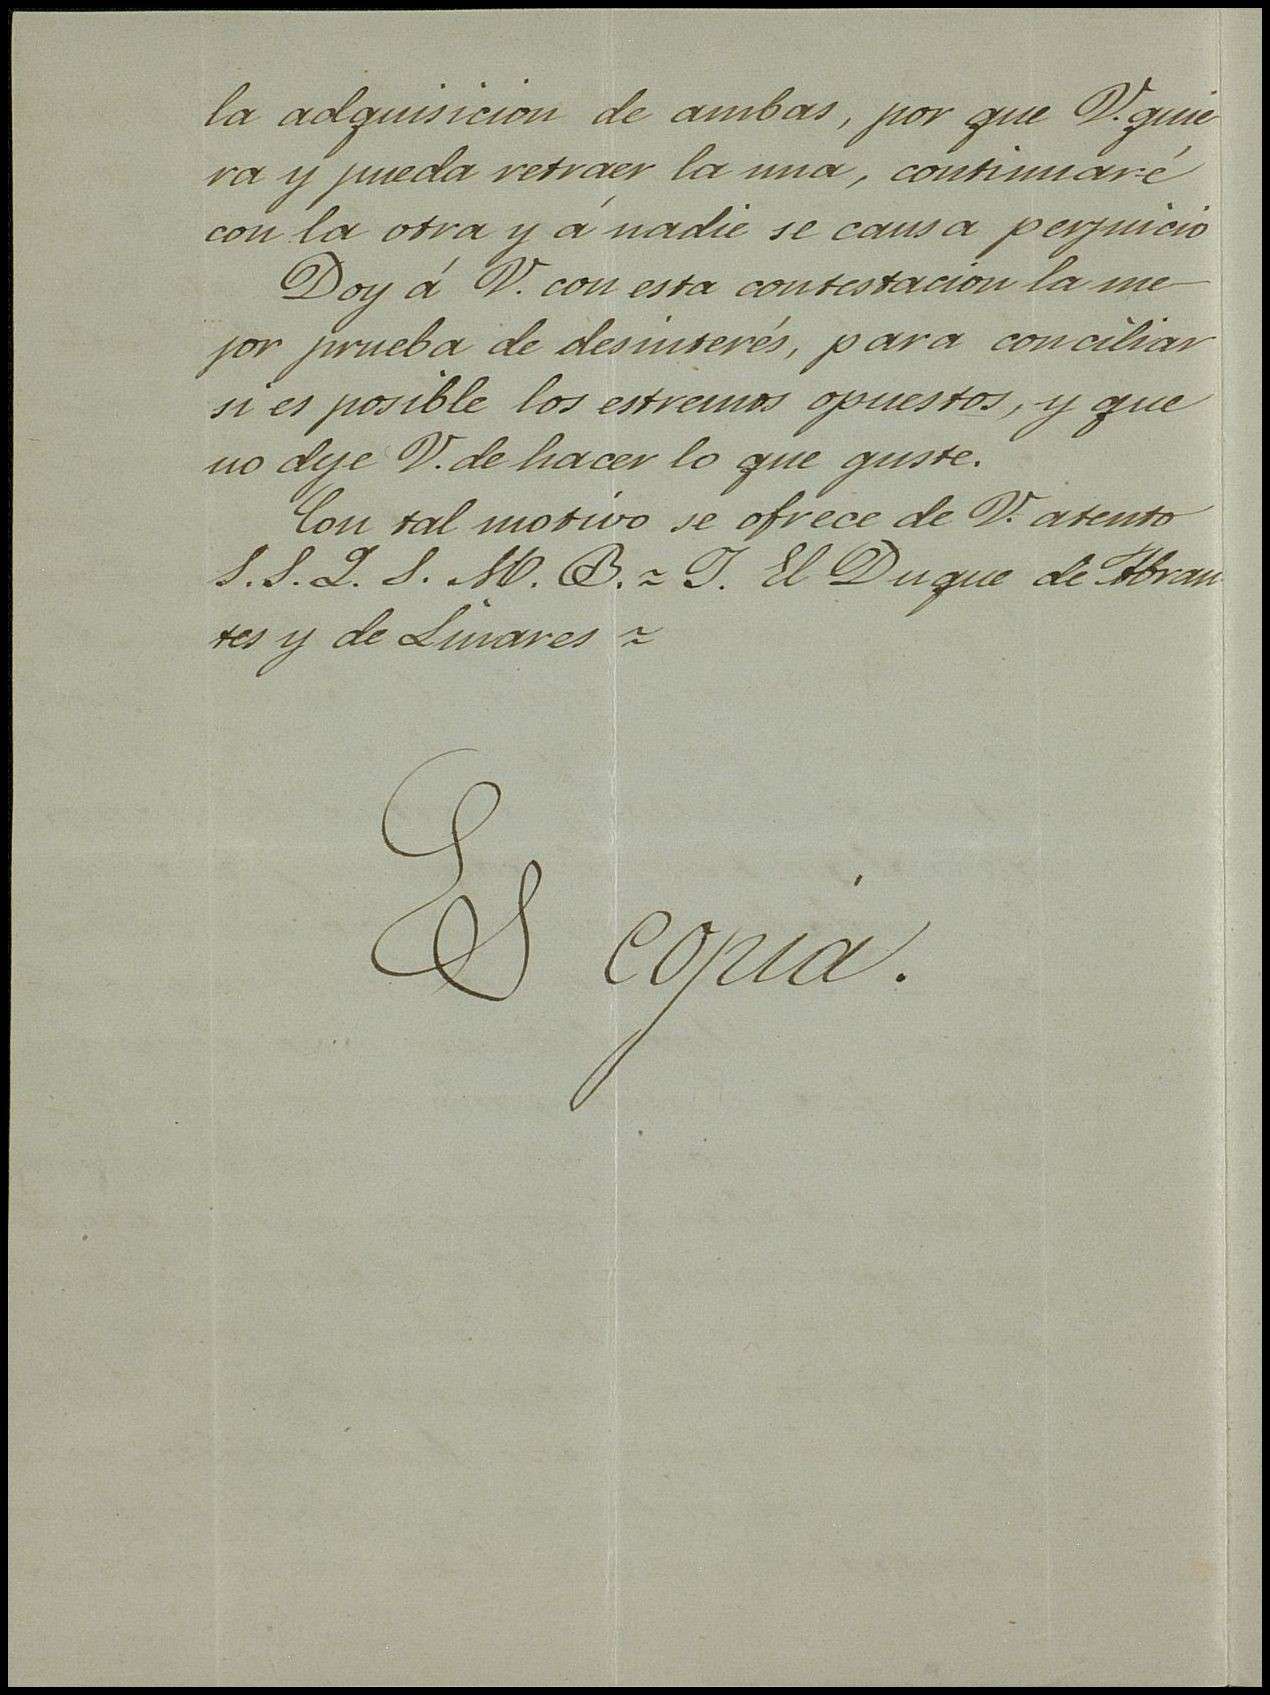 la adquisicion de ambas, por que V. quie
ra y pueda retraer la una, continuaré
con la otra y á nadie se causa perjuicio
Doy á V. con esta contestacion la me-
jor prueba de desinterés, para conciliar
si es posible los estremos opuestos, y que
no deje V. de hacer lo que guste.
Con tal motivo se ofrece de V. atento
S. S. Q. S. M. B. ~ J. El Duque de Abran
tes y de Linares ~
Es copia.